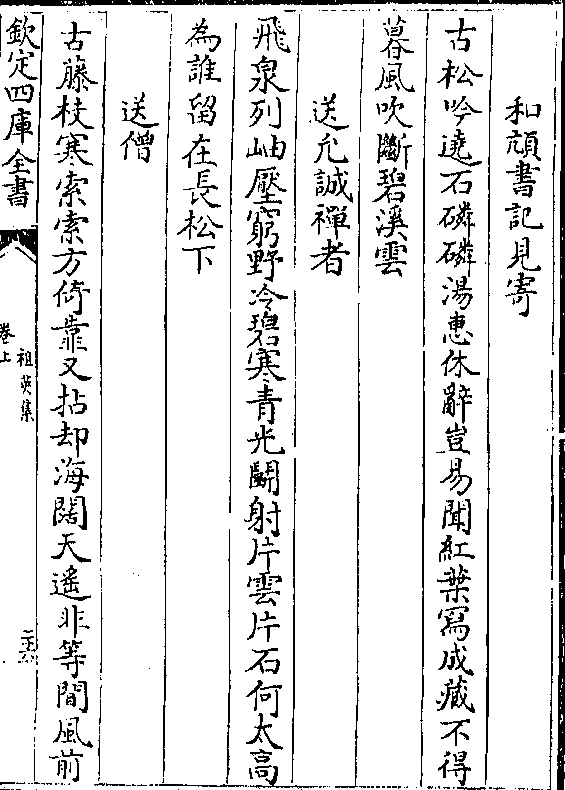 和頑書記見寄
古松吟遶石磷磷湯惠休辭豈易聞紅葉寫成藏不得
暮風吹斷碧溪雲
送允誠禪者
飛泉列岫壓窮野冷碧寒青光鬬射片雲片石何太高
為誰留在長松下
送僧
古藤枝寒索索方倚靠又拈却海闊天遙非等閒風前
欽定四庫全書
祖英集
卷上